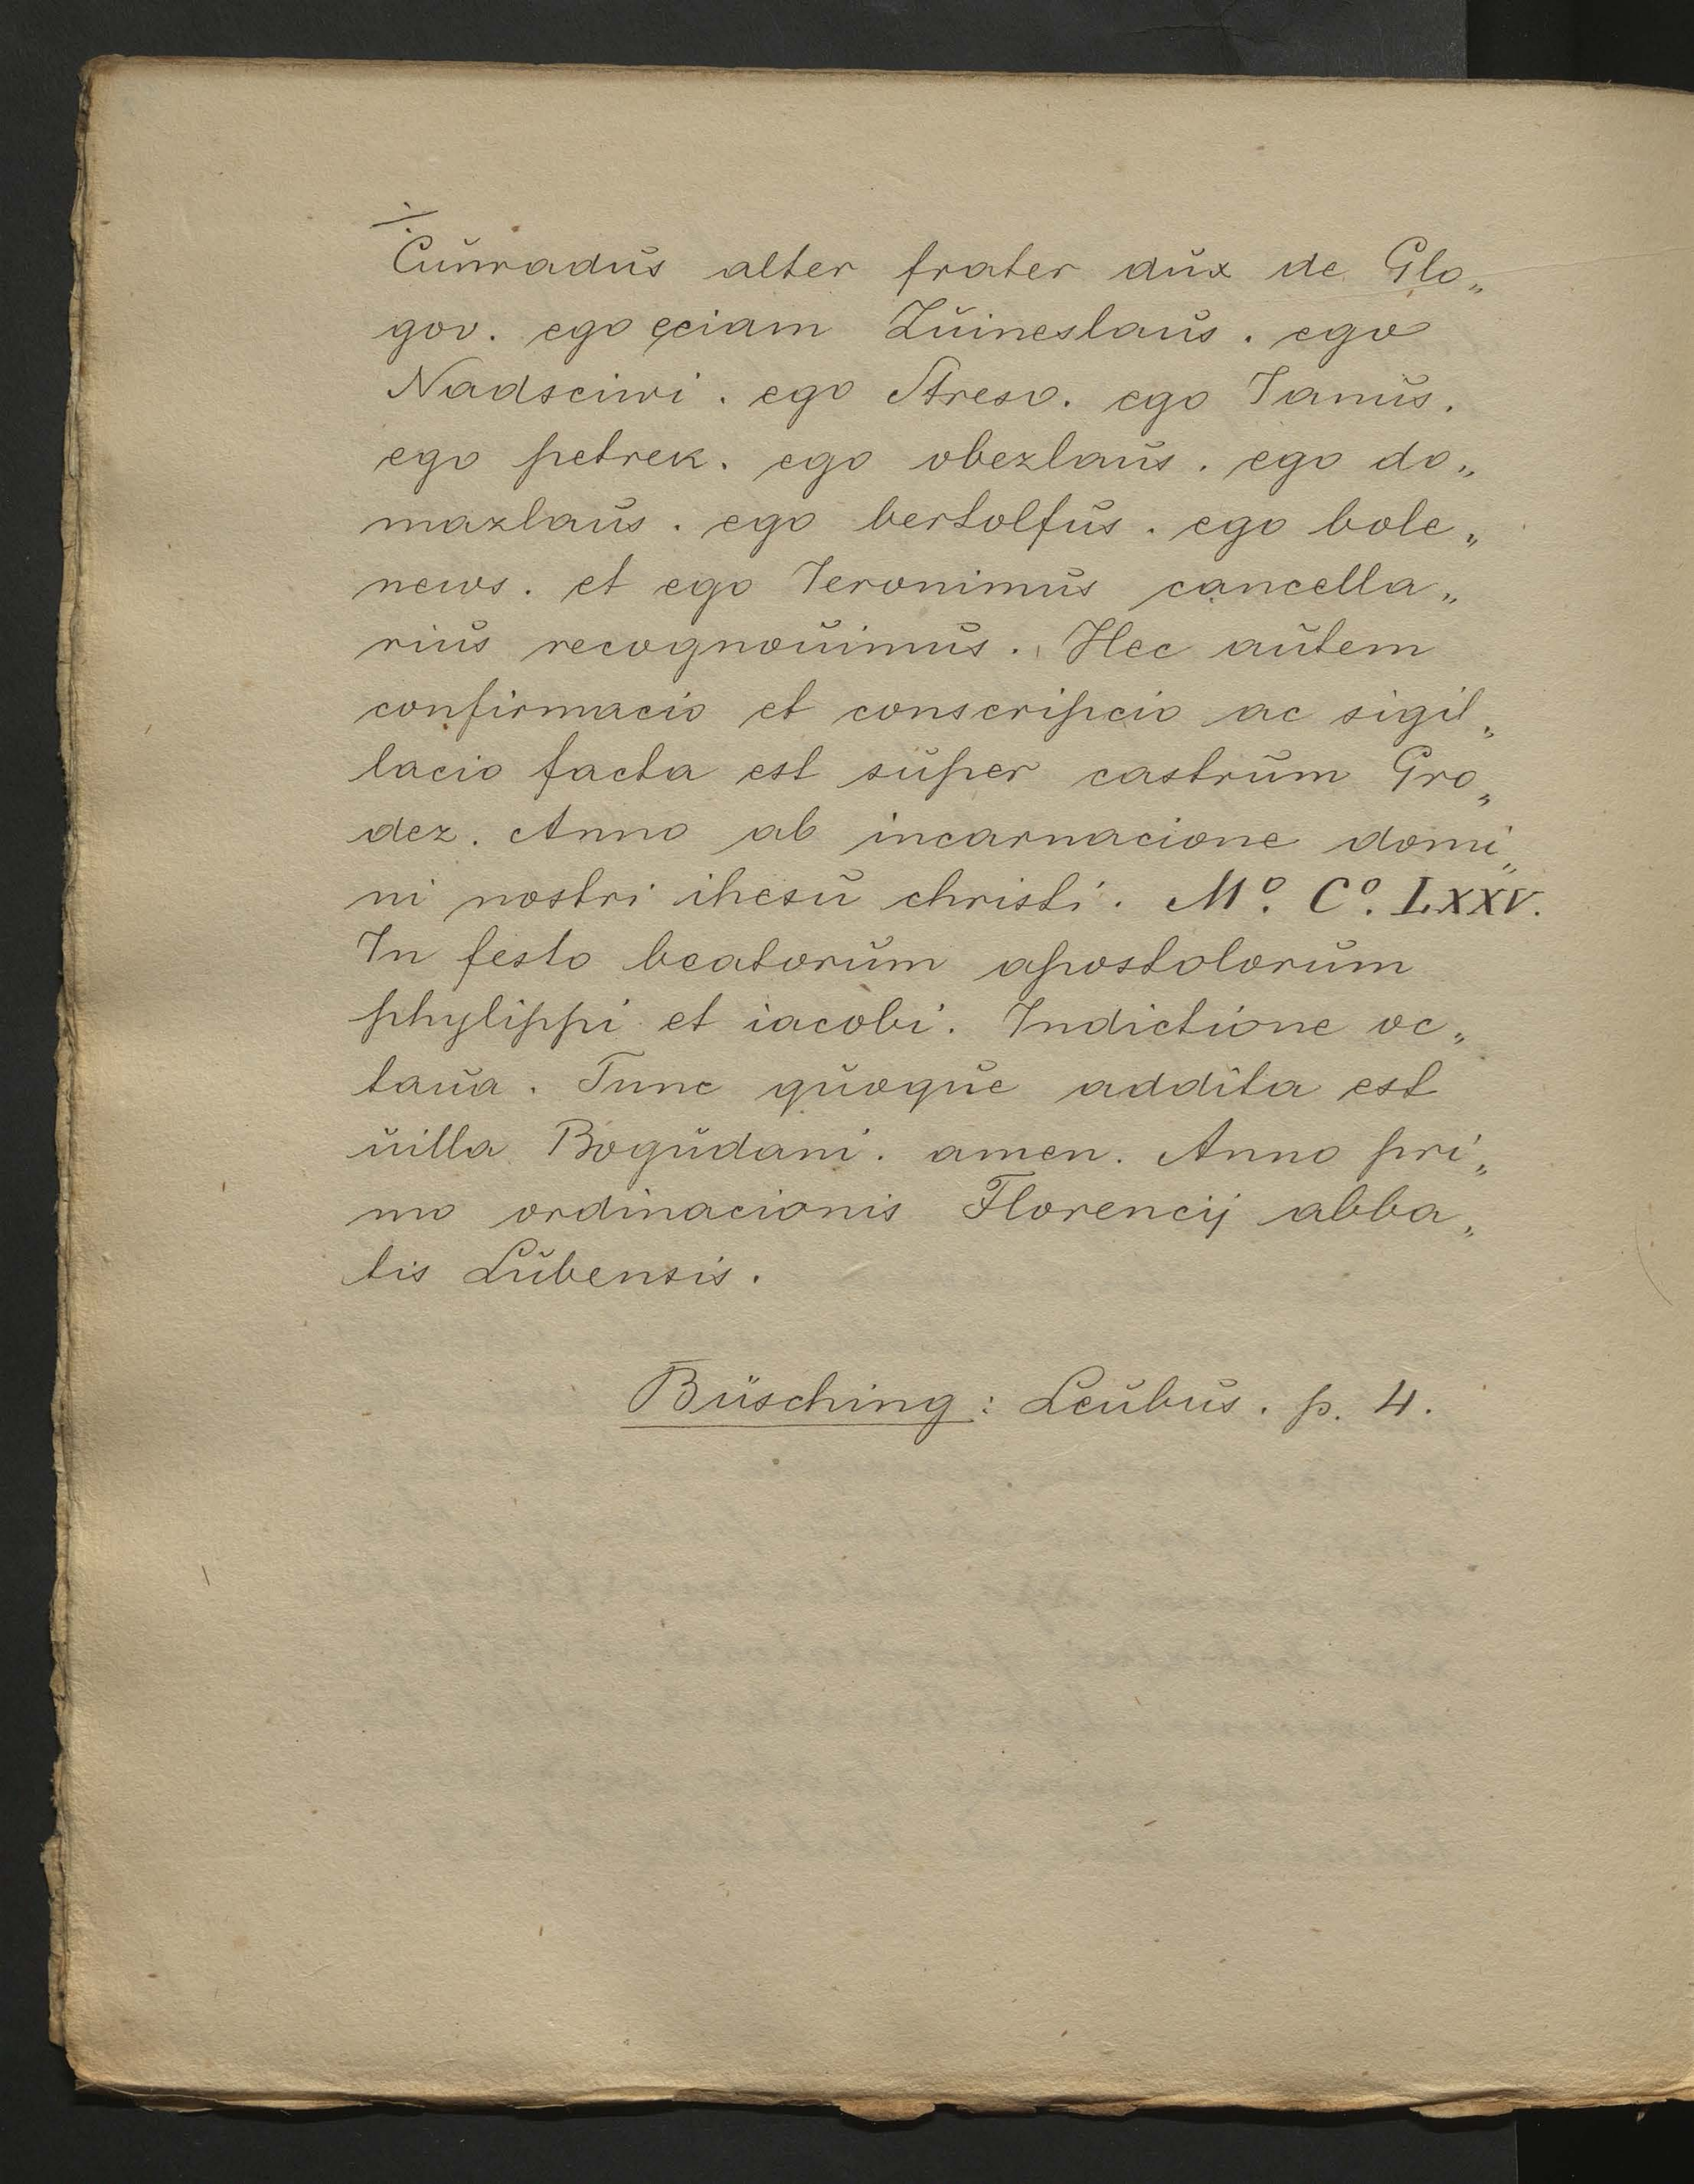 Cunradus alter frater dux de Glo„
gov. ego eciam Zuineslaus. ego
Nadsciwi. ego Streso. ego Janus.
ego petrek. ego obezlaus. ego do„
mazlaus. ego bertolfus. ego bole„
news. et ego Jeronimus cancella„
rius recognouimus. Hec autem
confirmacio et conscripcio ac sigil„
lacio facta est super castrum Gro„
dez. Anno ab incarnacione domi„
ni nostri ihesu christi. Mº. Cº. LXXV.
In festo beatorum apostolorum
phylippi et iacobi. Indictione oc„
taua. Tunc quoque addita est
uilla Bogudani. amen. Anno pri„
mo ordinacionis Florencij abba„
tis Lubensis.
Büsching: Leubus. p. 4.